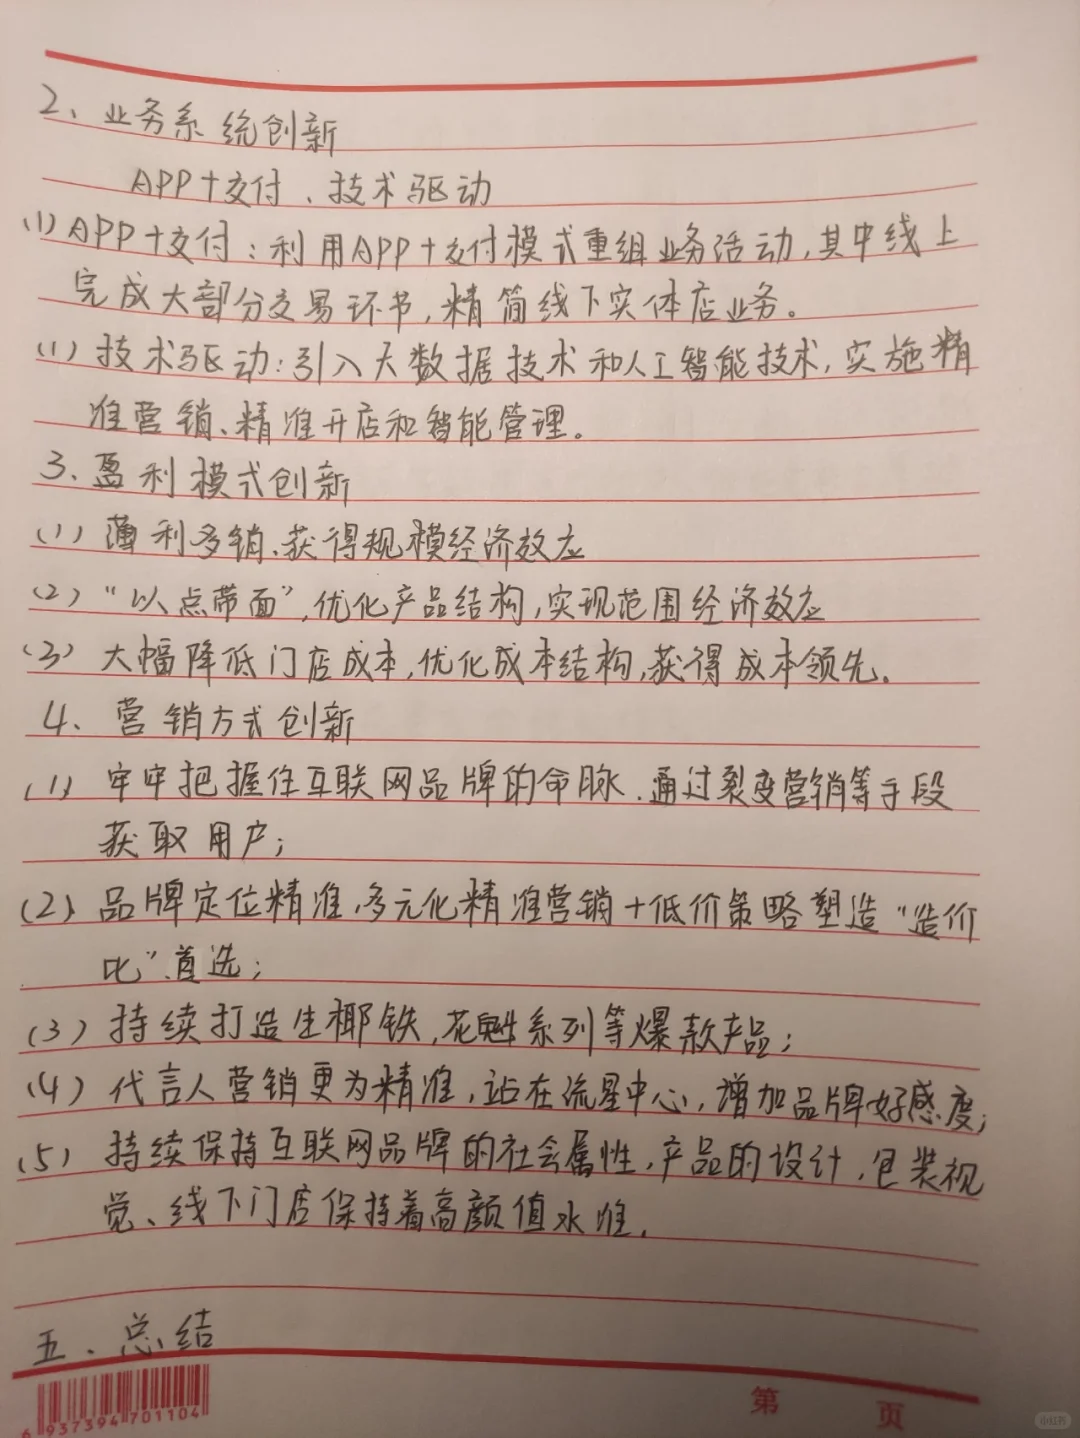 2、业务系统创新
APP+交付、技术驱动
(1) APP+交付：利用APP+交付模式重组业务活动,其中线上
完成大部分交易环节,精简线下实体店业务。
(1) 技术驱动：引入大数据技术和人工智能技术,实施精
准营销、精准开店和智能管理。
3、盈利模式创新
(1) 薄利多销、获得规模经济效应
(2) “以点带面”,优化产品结构,实现范围经济效应
(3) 大幅降低门店成本,优化成本结构,获得成本领先。
4、营销方式创新
(1) 牢牢把握住互联网品牌的命脉、通过裂变营销等手段
获取用户；
(2) 品牌定位精准,多元化精准营销+低价策略塑造“造价
比”首选；
(3) 持续打造生椰铁,花魁系列等爆款产品；
(4) 代言人营销更为精准,站在流星中心,增加品牌好感度；
(5) 持续保持互联网品牌的社会属性,产品的设计,包装视
觉、线下门店保持着高颜值水准.
五、总结
6 937394 701104
第 页
小红书